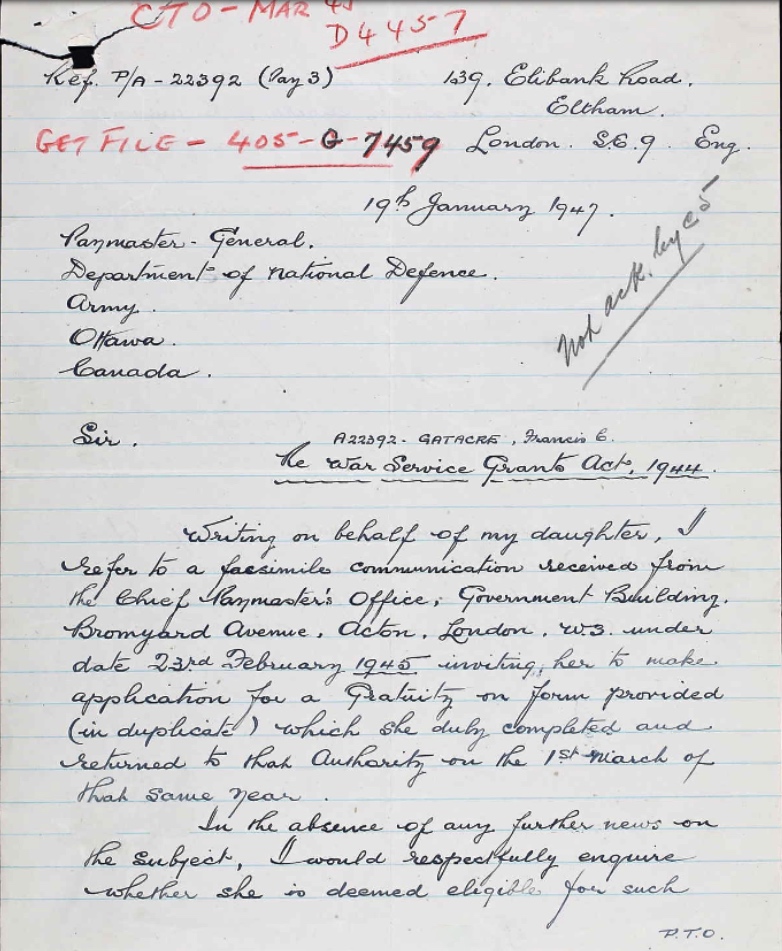 CTO - MAR 45
D4457
Ref. P/A - 22392 (Pay 3)
139, Elibank Road,
Eltham.
GET FILE - 405-G-7459
London. S.E.9. Eng.
19th January 1947.
Paymaster-General.
Department of National Defence.
Army.
Ottawa.
Canada.
Not ack. by C5
Sir.
A22392 - GATACRE, Francis C.
Re War Service Grants Act, 1944.
Writing on behalf of my daughter, I
refer to a facsimile communication received from
the Chief Paymaster's Office, Government Building,
Bromyard Avenue, Acton, London, W.3. under
date 23rd February 1945 inviting, her to make
application for a Gratuity on form provided
(in duplicate) which she duly completed and
returned to that Authority on the 1st March of
that same year.
In the absence of any further news on
the subject, I would respectfully enquire
whether she is deemed eligible for such
P.T.O.